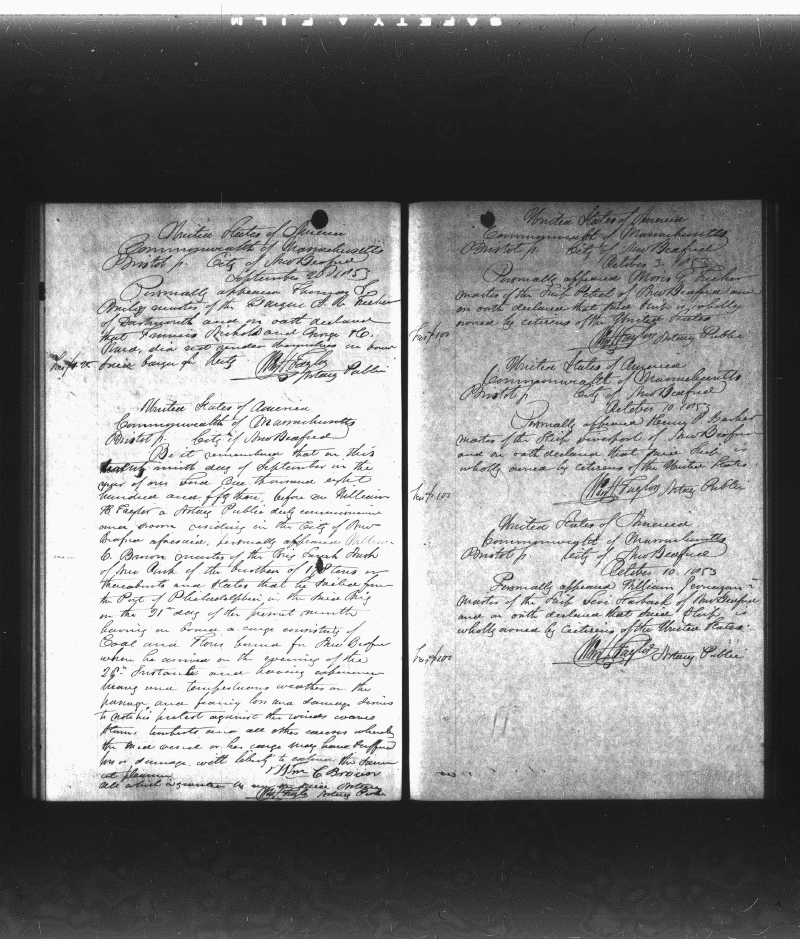 SAFETY FILM
United States of America
Commonwealth of Massachusetts
Bristol ss. City of New Bedford
September 1853
Personally appeared Thomas
master of the Barque
of Dartmouth and on oath declared
that Francis Nichols and George
did not render themselves on board
said barque for duty Wm H Taylor
Notary Public
United States of America
Commonwealth of Massachusetts
Bristol ss. City of New Bedford
Be it remembered that on this
twenty ninth day of September in the
year of our Lord One thousand eight
hundred and fifty three, before me William
H Taylor a Notary Public duly commissioned
and sworn residing in the City of New
Bedford aforesaid, personally appeared William
C. Brown master of the Brig Sarah
of New York of the burthen of 178 tons or
thereabouts and states that he sailed from
the Port of Philadelphia in the said Brig
on the 21st day of the present month
having on board a cargo consisting of
Coal and Flour bound for New Bedford
where he arrived on the evening of the
28th Instant and having experienced
heavy and tempestuous weather on the
passage and fearing loss and damage desires
to note his protest against the winds waves
storms tempests and all other causes whereby
the said vessel or her cargo may have suffered
loss or damage with liberty to extend the same
at pleasure Wm C Brown
all which is
Wm H Taylor Notary Public
United States of America
Commonwealth of Massachusetts
Bristol ss. City of New Bedford
October 3. 1853
Personally appeared
master of the Ship Petrel of New Bedford and
on oath declared that said Ship is wholly
owned by citizens of the United States
Wm H Taylor Notary Public
United States of America
Commonwealth of Massachusetts
Bristol ss. City of New Bedford
October 10. 1853
Personally appeared Henry P. Barker
master of the Ship Liverpool of New Bedford
and on oath declared that said Ship is
wholly owned by citizens of the United States
Wm H Taylor Notary Public
United States of America
Commonwealth of Massachusetts
Bristol ss. City of New Bedford
October 10. 1853
Personally appeared William
Master of the Ship Levi Starbuck of New Bedford
and on oath declared that said Ship is
wholly owned by Citizens of the United States.
Wm H Taylor Notary Public